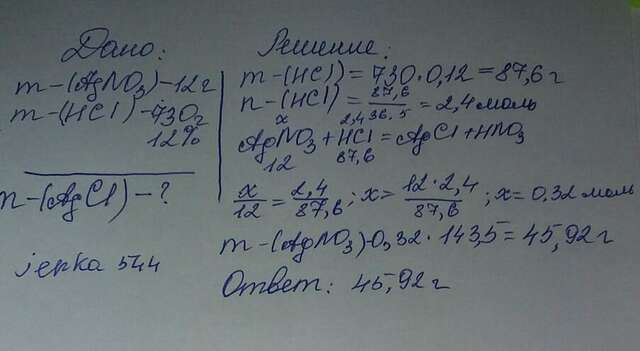 Дано:
m-(AgNO3)-12г
m-(HCl)-730г
12%
n-(AgCl)-?
jerka 544
Решение:
m-(HCl)=730·0,12=87,6г
n-(HCl)=87,6/36.5=2,4моль
x 2,4
AgNO3+HCl=AgCl+HNO3
12 87,6
x/12=2,4/87,6; x=12·2,4/87,6; x=0.32 моль
m-(AgNO3)-0,32·143,5=45,92г
Ответ: 45,92г